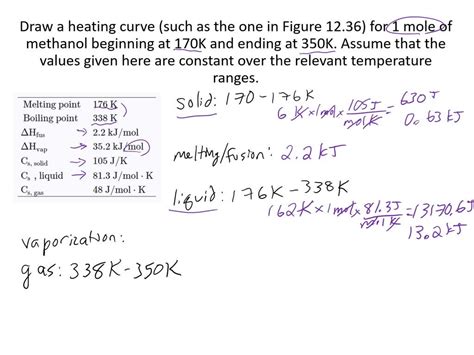 Draw a heating curve (such as the one in Figure 12.36) for 1 mole of
methanol beginning at 170K and ending at 350K. Assume that the
values given here are constant over the relevant temperature
ranges.
Melting point 176 K
Boiling point 338 K
ΔHfus 2.2 kJ/mol
ΔHvap 35.2 kJ/mol
Cs, solid 105 J/K
Cs , liquid 81.3 J/mol · K
Cs, gas 48 J/mol · K
solid: 170 - 176K
6 K x 1 mol x 105 J / mol K = 630 J
0.63 kJ
melting/fusion: 2.2 kJ
liquid: 176K - 338K
162K x 1 mol x 81.3 J / mol K = 13170.6J
13.2 kJ
vaporization:
gas: 338K-350K